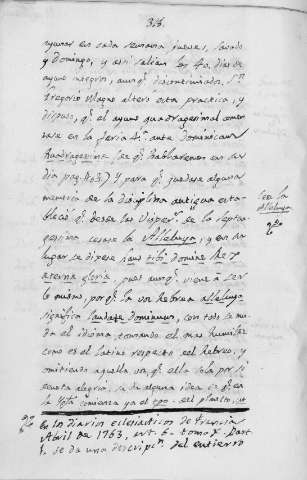 33.
ayunar en cada semana jueves, savado
y Domingo, y assi salian los 40. dias de
ayuno integros, aunq.e discontinuados. S.n
Gregorio Magno altero esta practica, y
dispuso, q.e el ayuno quadragesimal comen
zase en la feria 4.a ante Dominicam
Quadragesima (de q.e hablaremos en su
dia pag. 63.) Y para q.e quedase alguna
memoria de la disciplina antigua esta-
blecio q.e desde las Visper.s de la Septua-
gesima cesase la Alleluya, y en su
lugar se dixese Laus tibi Domine Rex
aeternae gloriae, pues aunq.e viene à ser
lo mismo, porq.e la voz hebrea alleluya
significa laudate dominum, con todo se mu
da el idioma, tomando el mas humilde
como es el latino respecto del hebreo, y
omitiendo aquella voz q.e ella sola por si
denota alegria, se da alguna idea de q.e en
la comienza ya el tpo. del planto,
De la
Alleluya
En los Diarios eclesiasticos de Francia
Abril de 1763. art. 6. tomo Part.
1. se da una descripc.n del entierro